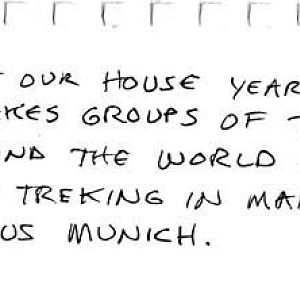 OUR HOUSE YEAR
KES GROUPS OF
ND THE WORLD
TREKING IN MA
US MUNICH.